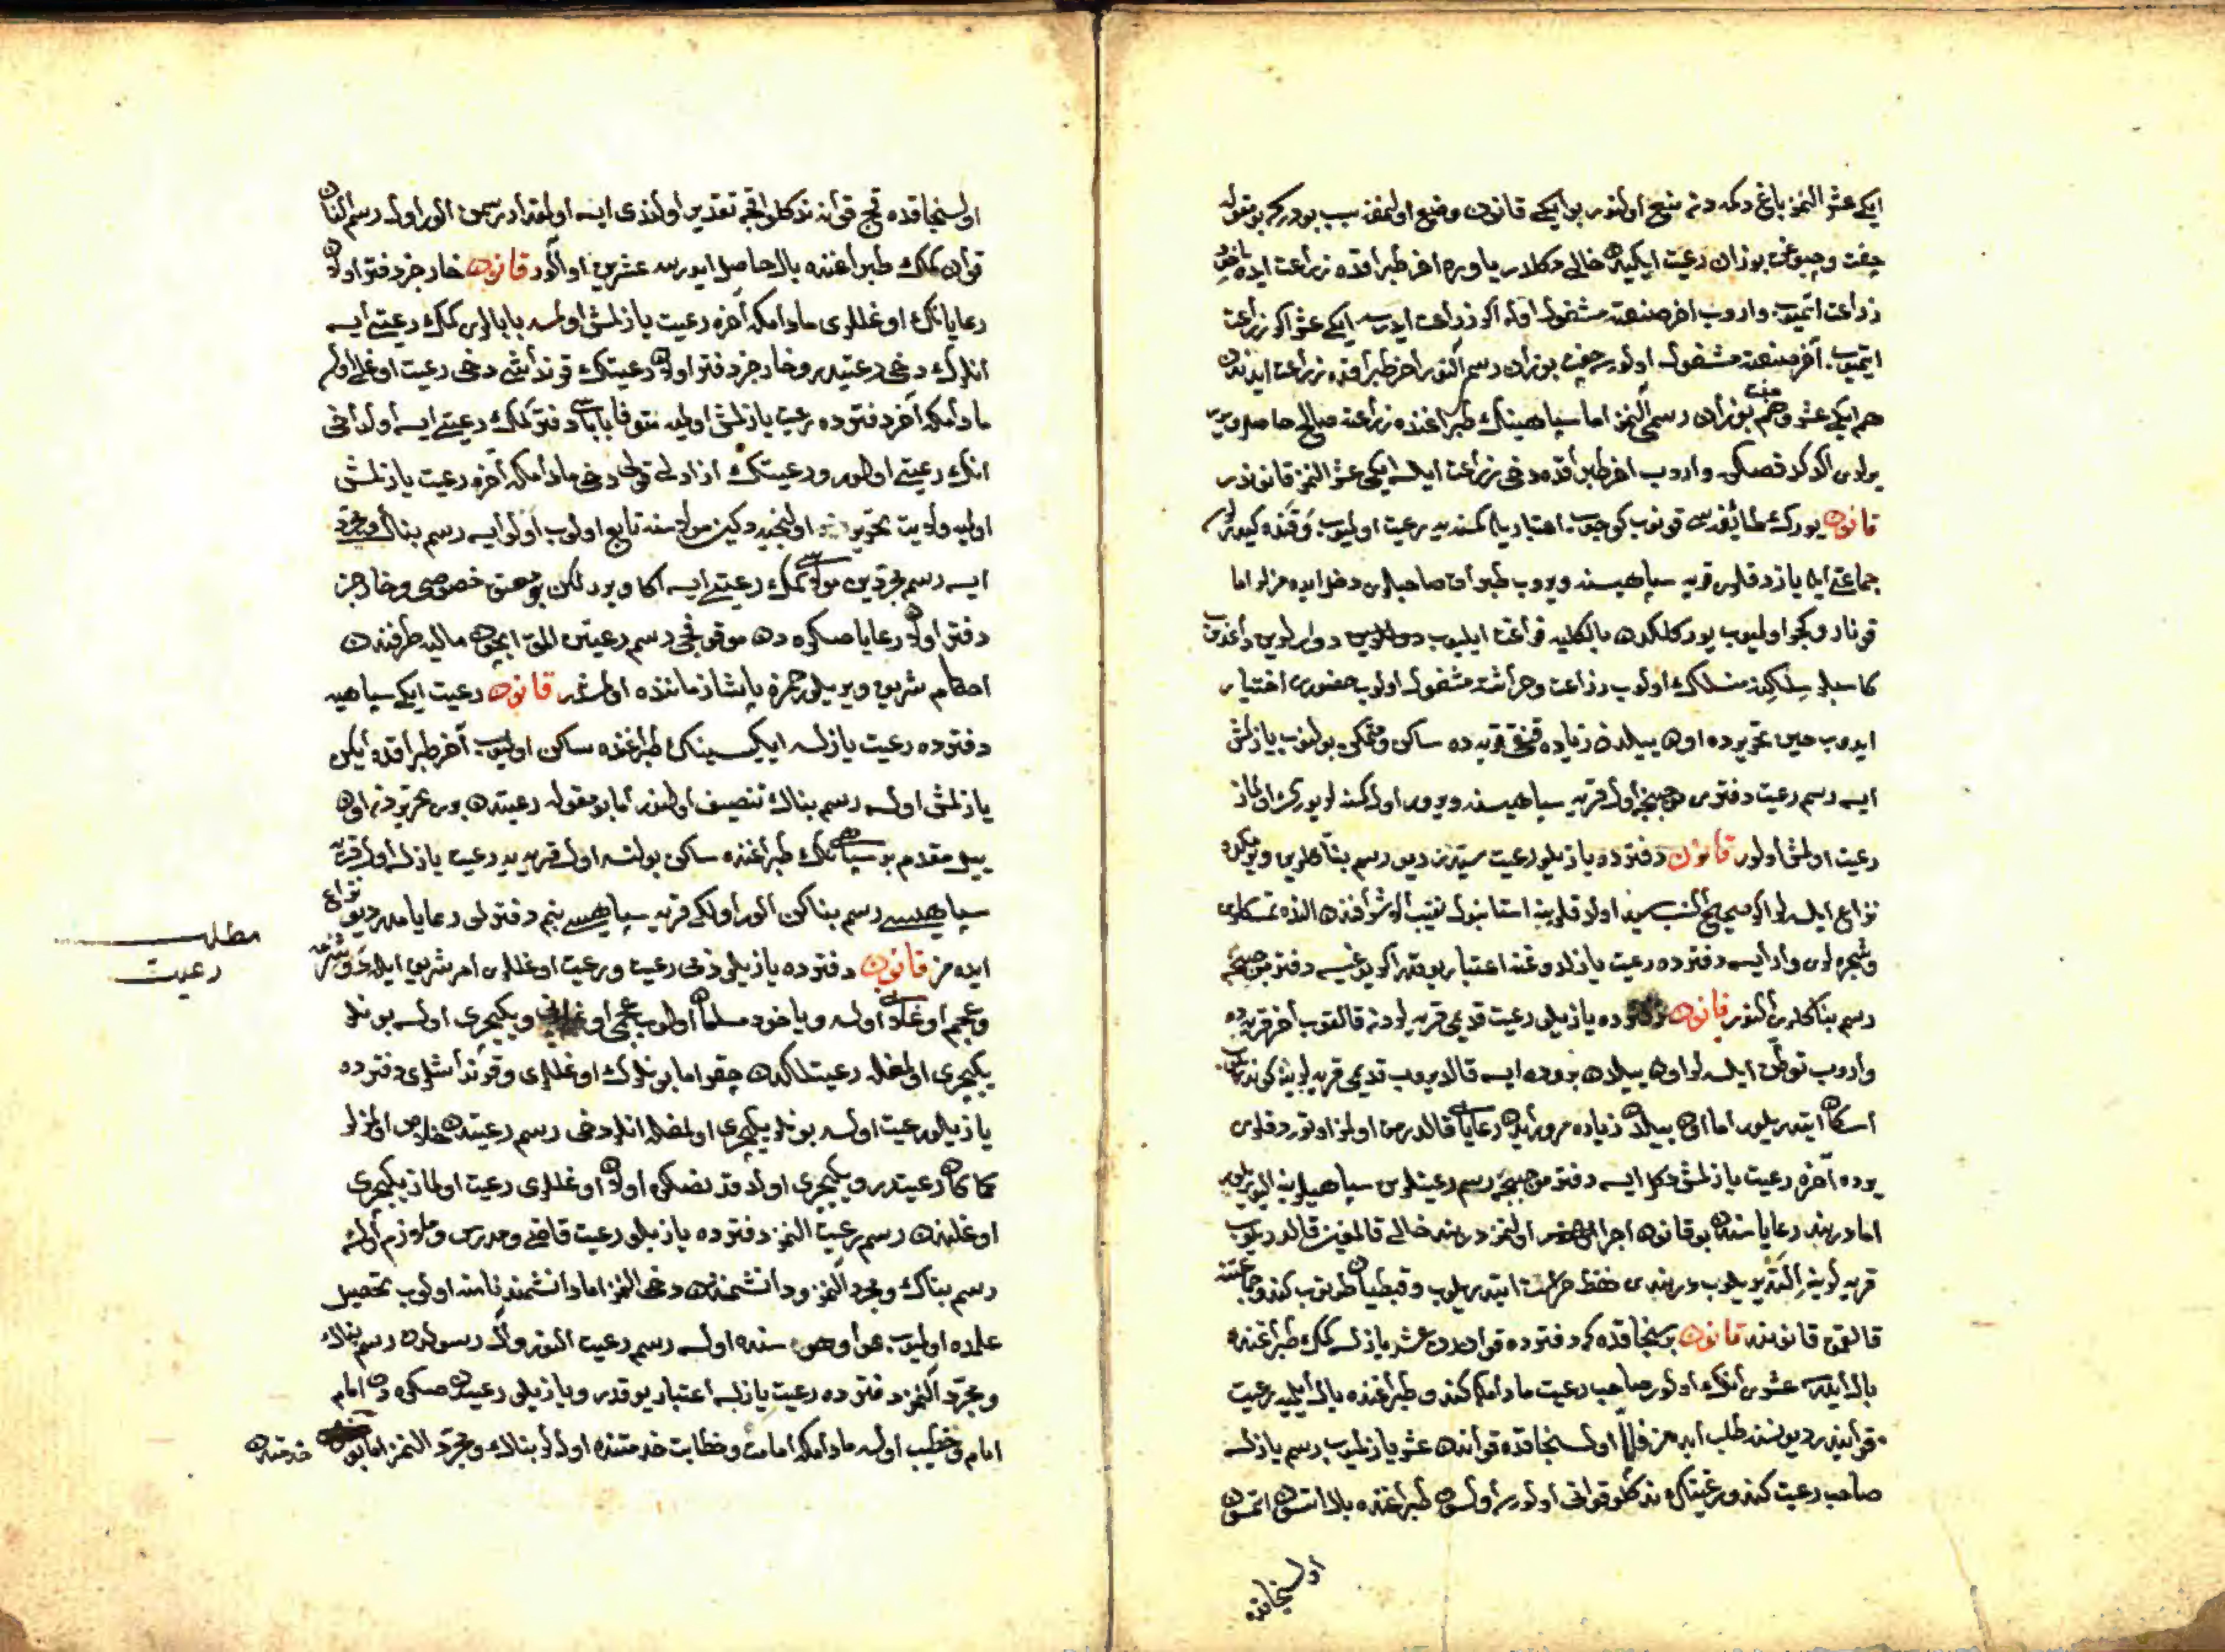 ایکی عشر النمز باغ دکمه دن منع اولنور بو ایکی قانون وضع اولنمغه سبب بودر که بو مقوله
چفت بوزان رعیت ایکیدن خالی دکلدر یا وره اخر طپراقده زراعت ایده یاخود
زراعت اتمیوب واروب اخر صنعته مشغول اوله اکر زراعت ایدرسه ایکی عشر اکر زراعت
ایتمیوب آخر صنعته مشغول اولورسه چفت بوزان رسمی آلنور اخر طپراقده زراعت ایدندن
هم ایکی عشر و هم چفت بوزان رسمی النمز اما سپاهینک طپراغنده زراعته صالح حاصل ویرر
یرلری اکر کدر قصدیله واروب اخر طپراقده دخی زراعت ایلسه ایکی عشر النمز قانوندر
قانون یورک طائفه سی قونوب کوچوب اعتباریله کمسنه یه رعیت اولمیوب و قنده کیدرلر
جماعتی ایله یازدقلری قریه سپاهیسنه ویروب طپراق صاحبلری دخل ایده مزلر اما
قونار و کوچر اولمیوب یورکلکدن بالکلیه فراغت ایلیوب دوارلرین داغدوب
کاسبلر سلکنه منسلک اولوب زراعت و حراثته مشغول اولوب حضوری اختیار
ایدوب حین تحریرده اون ییلدن زیاده قنغی قریه ده ساکن و متمکن بولنوب یازلمش
ایسه رسم رعیت دفتری موجبنجه اول قریه سپاهیسنه ویرور اول کمسنه لر یورک اولماز
رعیت اولمش اولور قانون دفترده یازیلو رعیت سیدز دیو رسم بناکلرین ویرمکده
نزاع ایلسه لر اکر صحیح النسب سید اولدقلرینه استانبول نقیب الاشرافندن النده تمسکلری
و شجره لری وار ایسه دفترده رعیت یازلدوغنه اعتبار یوقدر اکر یوغیسه دفتر موجبنجه
رسم بناکلری آلنور قانون دفترده یازیلی رعیت قدیمی قریه لردن قالقوب آخر قریه ده
واروب توطن ایلسه لر اون ییلدن بروده ایسه قالدیروب قدیمی قریه لرینه کوندریلوب
اسکان ایتدریلور اما اون ییلدن زیاده مرور ایدن رعایایی قالدرمق اولمز اوتوردقلری
یرده آخره رعیت یازلمش دکل ایسه دفتر موجبنجه رسم رعیتلرین سپاهیلرینه الیویریلور
اما دربند رعایاسنه بو قانون اجرا اولنمز دربند خالی قالمغین قالدریلوب
قریه لرینه ایلتدیریلوب دربندی حفظ حراست ایتدریلوب و قبطیان طوتوب کندو جماعتنه
قاتلمق قانوندر قانون بر سنجاقده که دفترده قواندن عشر یازلسه کمک طپراغنده
بال ایلرسه عشری انک اولور صاحب رعیت مادامکه کندو طپراغنده بال ایلمیه رعیت
قوانیدر دیو نسنه طلب ایده مز فاما اول سنجاقده قواندن عشر یازلمیوب رسم یازلسه
صاحب رعیت کندو رعیتنک نه کلو قوانی اولورسه اولسون طپراغنده بال اتسون اتمسون
اول سنجاقده
اول سنجاقده قچ قوانه نه کلو اقچه تقدیر اولندی ایسه اولقدر رسمن الور اول رسم النان
قوان کمک طپراغنده بال حاصل ایدرسه عشرین اول آلور قانون خارج از دفتر اولان
رعایانک اوغللری مادامکه آخره رعیت یازلمش اولمسه بابالری کمک رعیتی ایسه
انلر دخی رعیتیدر و خارج از دفتر اولان رعیتک قونداشی دخی رعیت اوغلی اولم
مادامکه آخر دفترده رعیت یازلمش اولمیه متوفا باباسی دفترده کمک رعیتی ایسه اول دخی
انک رعیتی اولور و رعیتک ازادلی قولی دخی مادامکه آخره رعیت یازلمش
اولمیه ولایت تحریر اولنجیه دکین مولاسنه تابع اولوب اولو ایسه رسم بناک و مجرد
ایسه رسم مجردین مولاسی کمک رعیتی ایسه اکا ویرر لکن بو حق خصوصی و خارج از
دفتر اولان رعایا صکره دن موقوفجی رسم رعیتن المق ایچون مالیه طرفندن
احکام شریف ویریلور حمزه پاشا زماننده اولمشدر قانون رعیت ایکی سپاهیه
دفترده رعیت یازلسه ایکیسینک طپراغنده ساکن اولمیوب آخر طپراقده ایکن
یازلمش اولسه رسم بناک تنصیف اولنور اما بو مقوله رعیتدن بری تحریردن اون
ییل مقدم بر سپاهینک طپراغنده ساکن بولنسه اول قریه یه رعیت یازلسه اول قریه
سپاهیسی رسم بناکن الور اولکی قریه سپاهیسی بنم دفترلی رعایامدر دیو نزاع
ایده مز قانون دفترده یازیلی ذمی رعیت و رعیت اوغللری امر شریف ایله دوشرمه
و عجم اوغلانی اولسه و یا خود مسلمان اولوب عجمی اوغلانی و یکیچری اولسه بونلر
یکیچری اولمغله رعیتلکدن چقر اما بونلرک اوغللری و قونداشلری دفترده
یازیلو رعیت اولسه بونلر یکیچری اولمغله انلر دخی رسم رعیتدن خلاص اولمزلر
کماکان رعیتدر و یکیچری اولدقدنصکره اولان اوغللری رعیت اولماز یکیچری
اوغلندن رسم رعیت النمز دفترده یازیلو رعیت قاضی و مدرس و ملازم اولسه
رسم بناک و مجرد آلنمز و دانشمندن دخی النمز اما دانشمند نامنه اولوب تحصیل
علمده اولمیوب هوا و هوس سنده اولسه رسم رعیت النور واکر رسولدن رسم بناک
و مجرد آلنمز دفترده رعیت یازلسه اعتبار یوقدر و یازیلی رعیتدن صکره دن امام
امام و خطیب اولسه مادامکه امامت و خطابت خدمتنده اولالر بناک و مجرد النمز اما بو خدمتدن
مطلب
رعیت